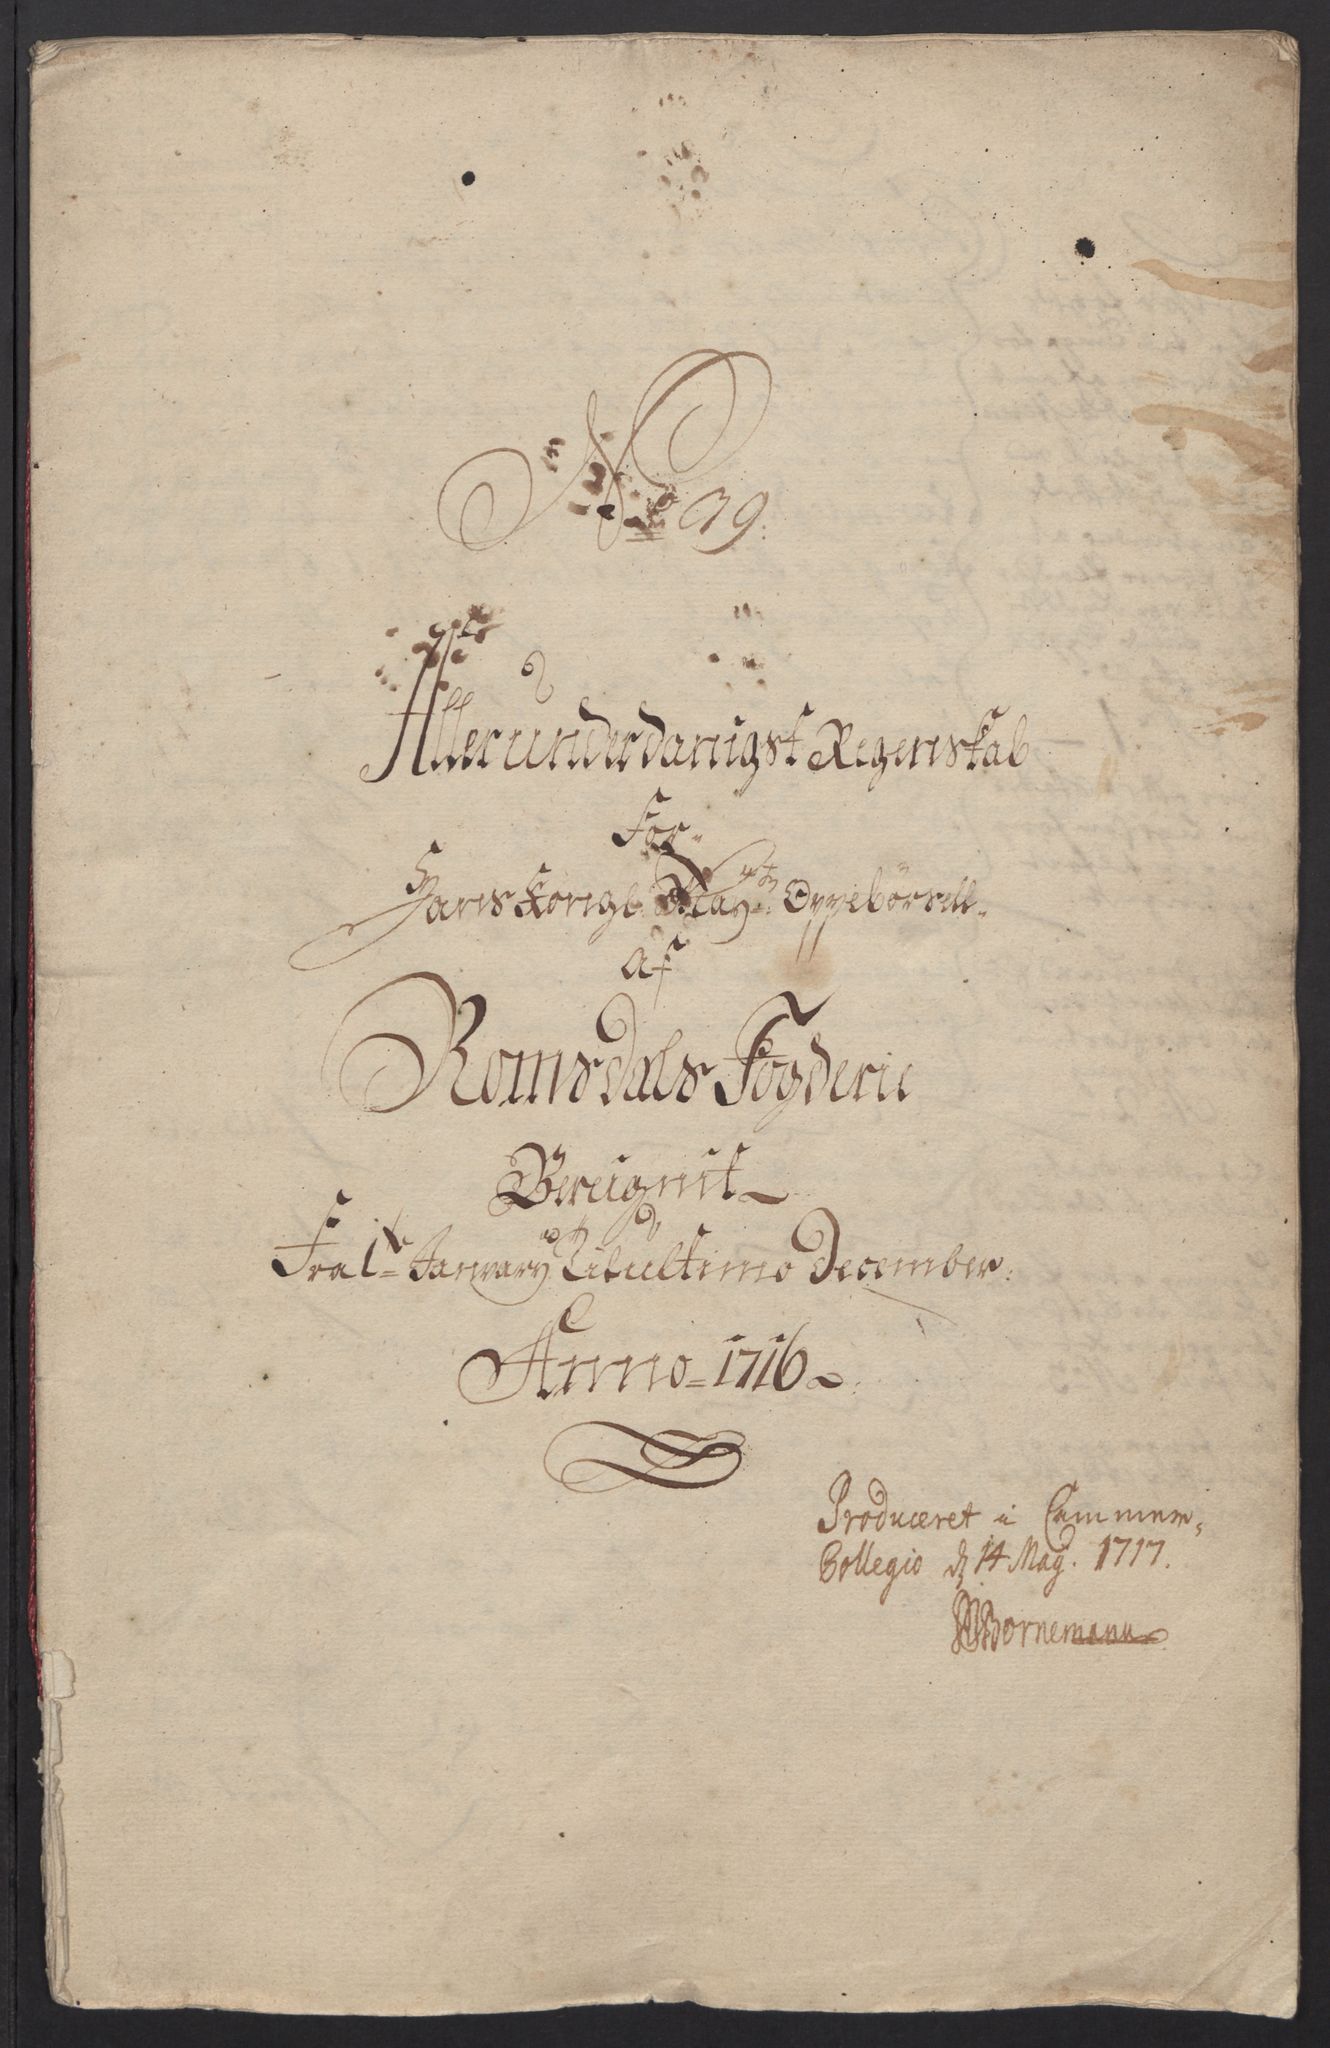 No 39.
Allerunderdanigst Regenskab
For
Hans Kongl: Mayts: Oppebörsell
af
Romsdals Fogderie
Bereignit
Fra 1te January til ultimo December
Anno 1716
Produceret i Cammer-
Collegio dz 14 May. 1717.
Bornemann